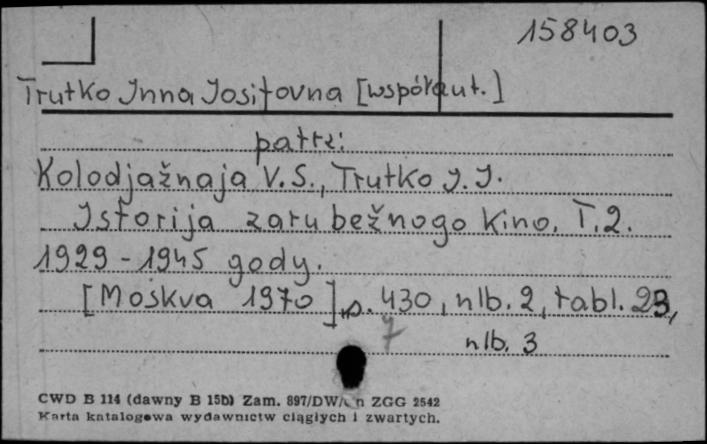 158403
Trutko Inna Iosifovna [współaut.]
patrz:
Kolodjažnaja V.S., Trutko I.I.
Istorija zarubežnogo kino. T.2.
1929-1945 gody.
[Moskva 1970] s. 430, nlb. 2, tabl. 23,
7 nlb. 3
CWD B 114 (dawny B 15b) Zam. 897/DW/ n ZGG 2542
Karta katalogowa wydawnictw ciągłych i zwartych.